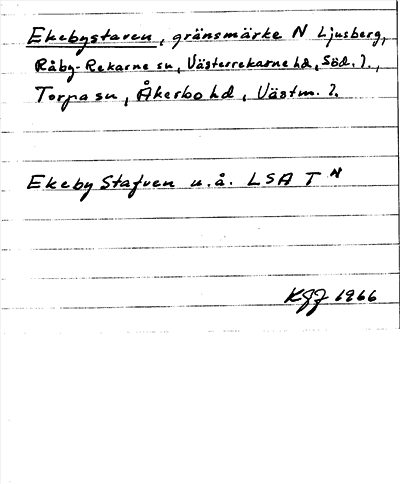 Ekebystaven, gränsmärke N Ljusberg,
Råby-Rekarne sn, Västerrekarne hd, Söd. l.,
Torpa sn, Åkerbo hd, Västm. l.
Ekeby Stafven u.å. LSA T N
KGJ 1966